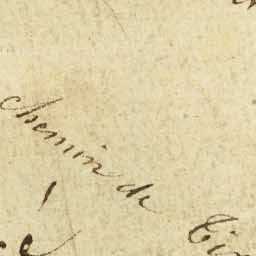 chemin de